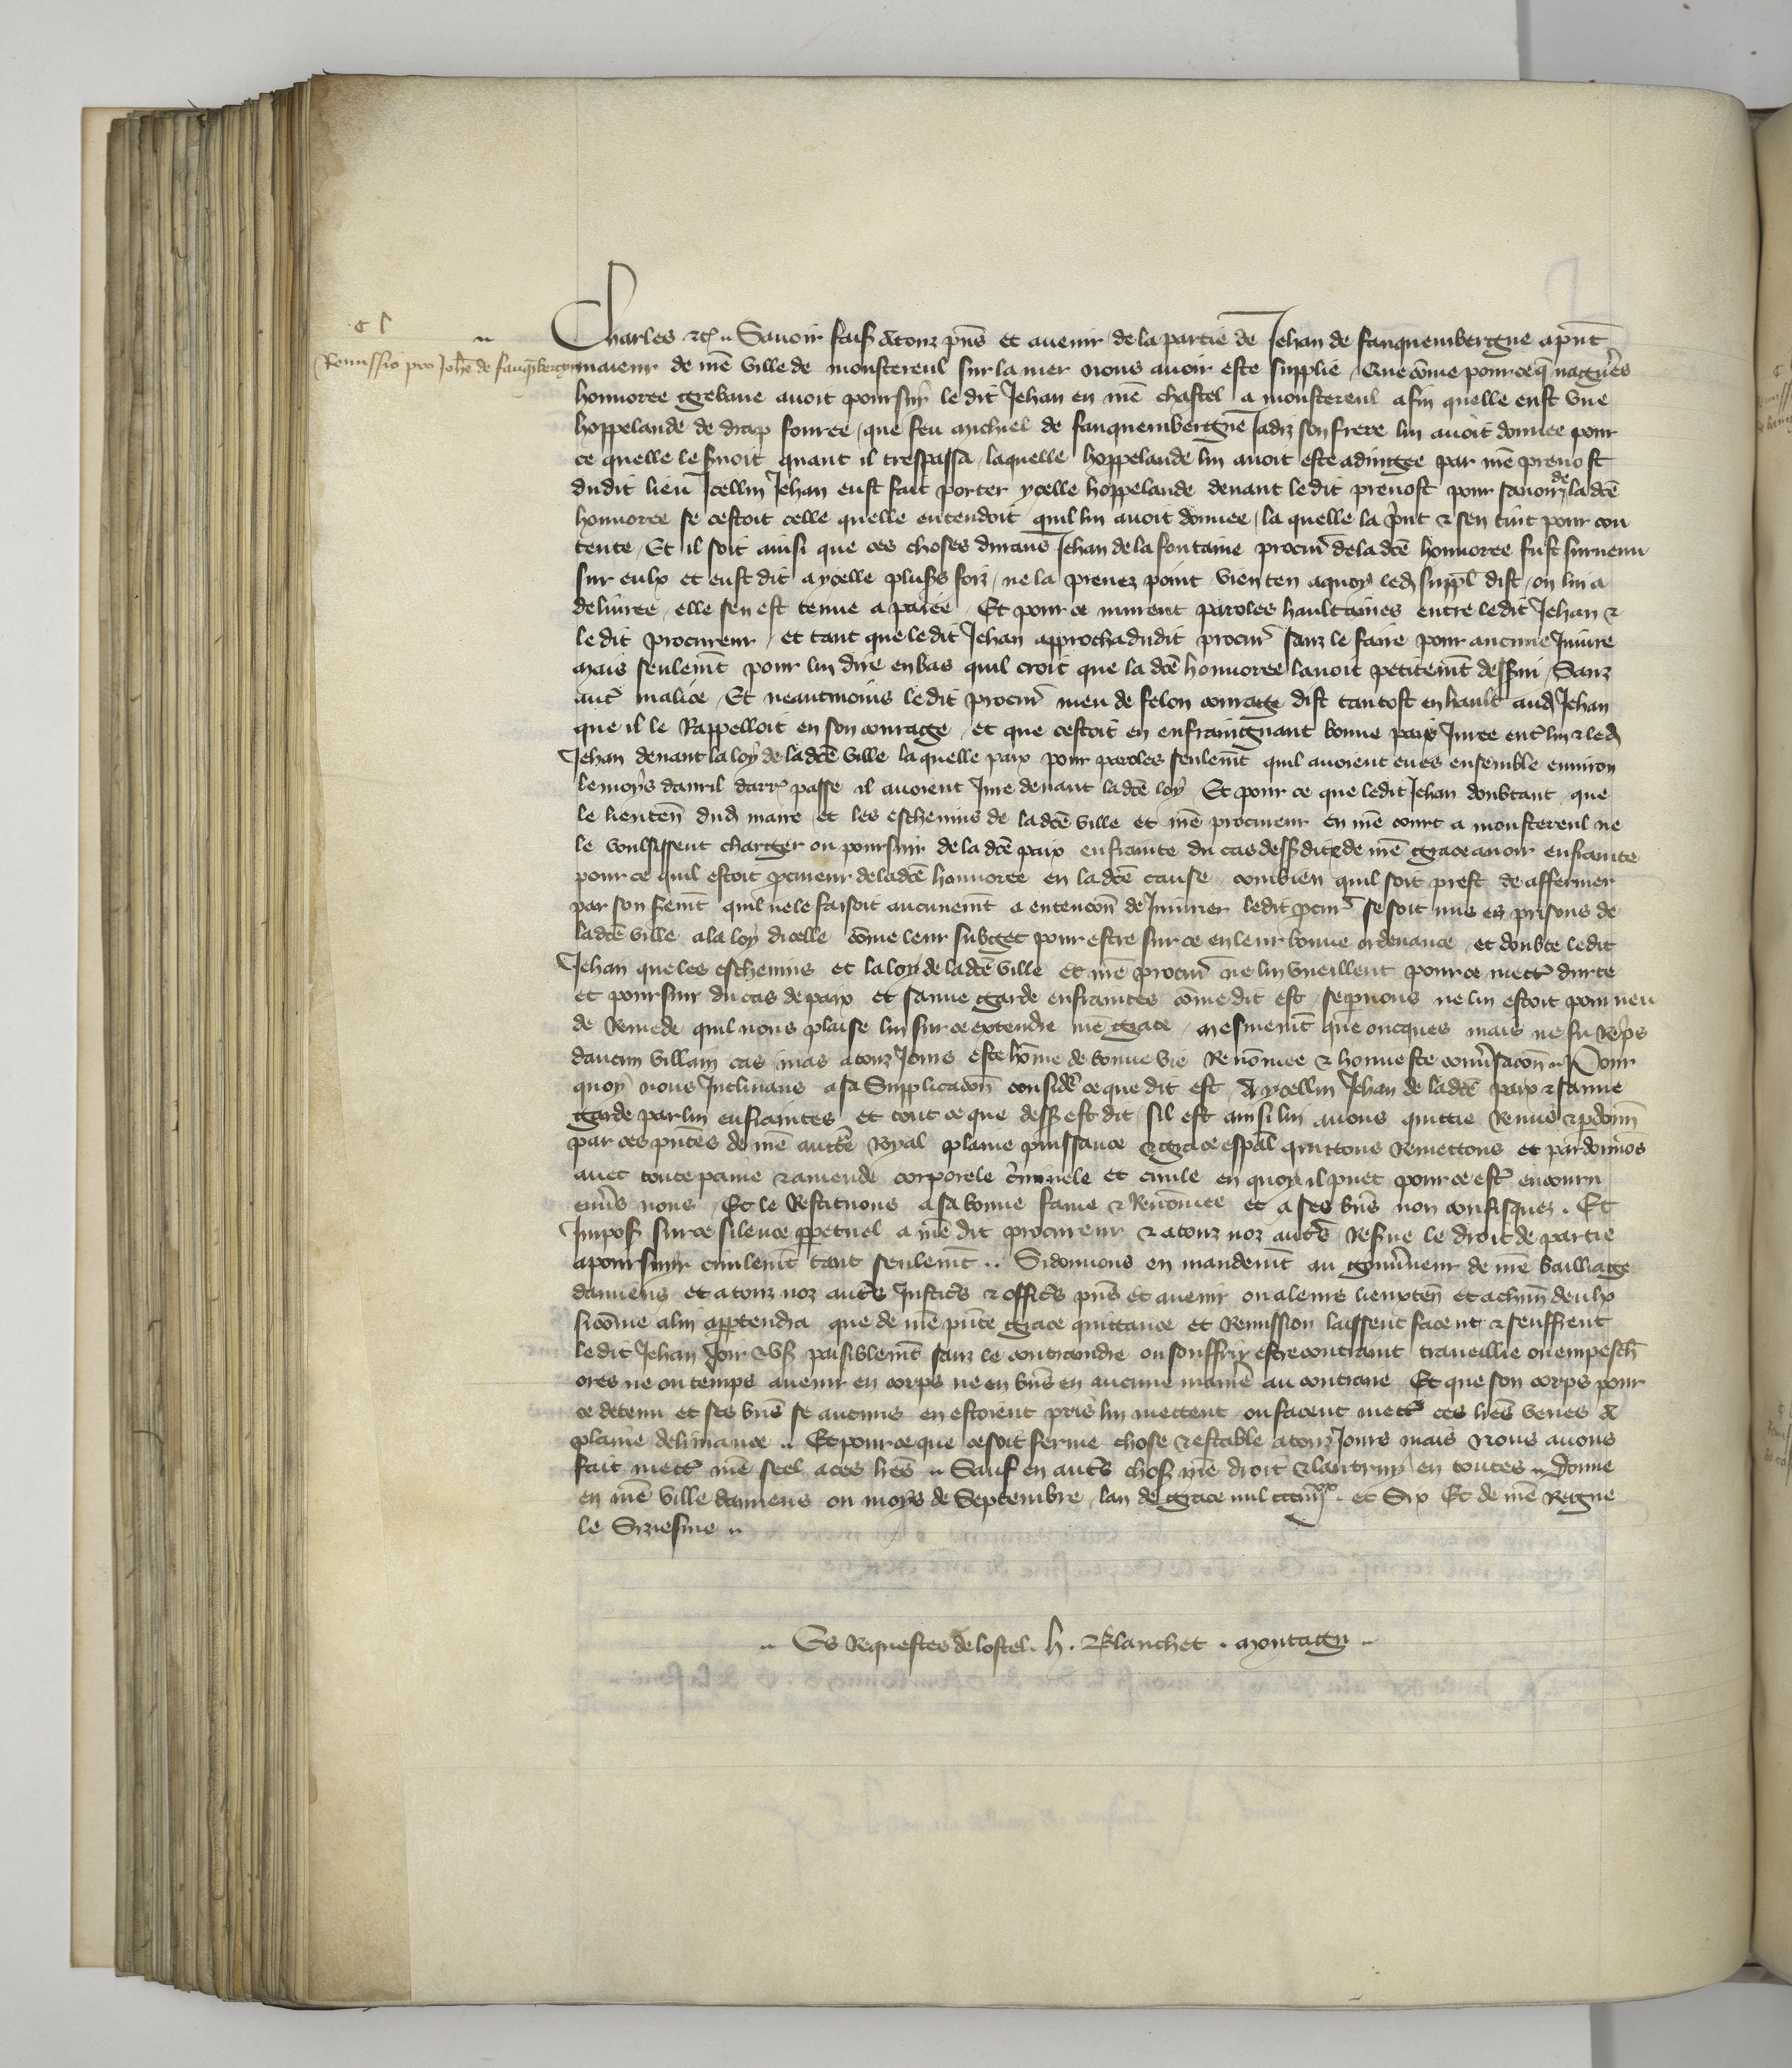 c l
Remissio pro Johē de fauqēbergue
Charles etc. Savoir faiss a touz pñs et avenir, de la partie de Jehan de fauquembergue a pñt
maieur de nr̄e ville de monstereul sur la mer nous avoir este supplie, Que cōme pour ce q̄ nagr̄es
honnoree grebaue avoit poursuy le dit Jehan en nr̄e chastel a monstereul afin quelle eust une
hoppelande de drap fourree, que feu michiel de fauquembergue Jadiz son frere lui avoit donnee pour
ce quelle le servoit quant il trespassa, laquelle hoppelande lui avoit este adiugee par nr̄e prevost
dudit lieu Icellui Jehan eust fait porter ycelle hoppelande devant ledit prevost pour savoir de lad̄ce
honnoree se cestoit celle quelle entendoit quil lui avoit donnee, la quelle la p̄nt & sen tint pour con
tente, Et il soit ainsi que ces choses durans Jehan de la fontaine procur̄ de lad̄ce honnoree fust survenu
sur eulx et eust dit a ycelle plus̄s foiz, ne la prenez point, vien ten aquoy led̄ suppl̄ dist, on lui a
delivree, elle sen est tenue a paiee, Et pour ce murent paroles haultaines entre ledit Jehan &
le dit procureur, et tant que le dit Jehan approcha dudit procur̄ sanz le faire pour aucune Iniure
mais seulem̄t pour lui dire en bas quil croit que la d̄ce honnoree lavoit petitem̄t desservi, Sanz
aut̄ malice, Et neantmoins le dit procur̄ meu de felon courage dist tantost en hault aud̄ Jehan
que il le Rappelloit en son courage, et que cestoit en enfraingnant bonne paix Juree ent̄ lui & led̄
Jehan devant la loy de lad̄ce ville la quelle paix pour paroles seulem̄t quil avoient eues ensemble environ
le moys davril darr̄ passe il avoient Jure devant lad̄ce loy Et pour ce que ledit Jehan doubtant que
le lieuten̄ dud̄ maire et les eschevins de lad̄ce ville et nr̄e procureur en nr̄e court a monstereul ne
le voulsissent charger ou poursuir de la d̄ce paix enfrainte du cas dess̄ dit & de nr̄e grace avoir enfrainte
pour ce quil estoit p̄cureur de lad̄ce honnoree en la d̄ce cause, combien quil soit prest de affermer
par son serem̄t quil ne le faisoit aucunem̄t a entencōn de Iniurier ledit p̄cur̄ se soit mis es prisons de
lad̄ce ville a la loy dicelle cōme leur subget pour estre sur ce en leur bonne ordenance, et doubte ledit
Jehan que les eschevins et la loy de lad̄ce ville et nr̄e procur̄ ne lui vueillent pour ce mett̄ durte
et poursuir du cas de paix et sauve garde enfraintes cōme dit est, se par nous ne lui estoit pourveu
de Remede quil nous plaise lui sur ce extendre nr̄e grace, mesmem̄t que oncques mais ne fu rep̄s
daucun villain cas, mas a touz Jours este hōme de bonne vie Renōmee & honneste conv̄sacōn Pour
quoy nous Inclinans a sa Supplicacōn consid̄e ce que dit est, A ycellui Jehan de lad̄ce paix & sauve
garde par lui enfraintes et tout ce que dess̄ est dit, sil est ainsi lui avons quittie Remis & pardōn̄
par ces pñtes de nr̄e auct̄e Royal plaine puissance & grace esp̄al quittons Remettons et pardonnōs
avec toute paine & amende corporele c̄minele et civile en quoy il puet pour ce est̄ encouru
env̄s nous Et le Restituons a sa bonne fame & Renōmee et a ses biēs non confisquez. Et
Impos̄ sur ce silence perpetuel a nr̄e dit procureur & a touz noz aut̄s Reserve le droit de partie
a poursuyr civilem̄t tant seulem̄t.. Si donnons en mandem̄t au gouv̄neur de nr̄e bailliage
damiens et a touz noz aut̄s Justic̄s & offic̄s pñs et avenir ou a leurs lieuxten̄ et a ch̄un deulx
si cōme a lui appartendra que de nr̄e pñte grace quittance et Remission laissent facent & seuffrent
le dit Jehan Joir & us̄ paisiblem̄t sanz le contraindre ou souffrir estre contraint travaillie ou empesch̄
ores ne ou temps avenir en corps ne en biēs en aucune manīe au contraire Et que son corps pour
ce detenu et ses biēs se aucuns en estoient pris lui mettent ou facent mett̄ ces l̄res veues a
plaine delivrance.. Et pour ce que ce soit ferme chose & estable a touz Jours mais Nous avons
fait mett̄ nr̄e seel a ces l̄res.. Sauf en aut̄s chos̄ nr̄e droit & lautruy en toutes.. Donne
en nr̄e ville damiens ou moys de Septembre, lan de grace mil ccciiijxx. et Six Et de nr̄e Regne
le Siziesme..
.. Es Requestes de lostel. h. Blanchet. montagu ..